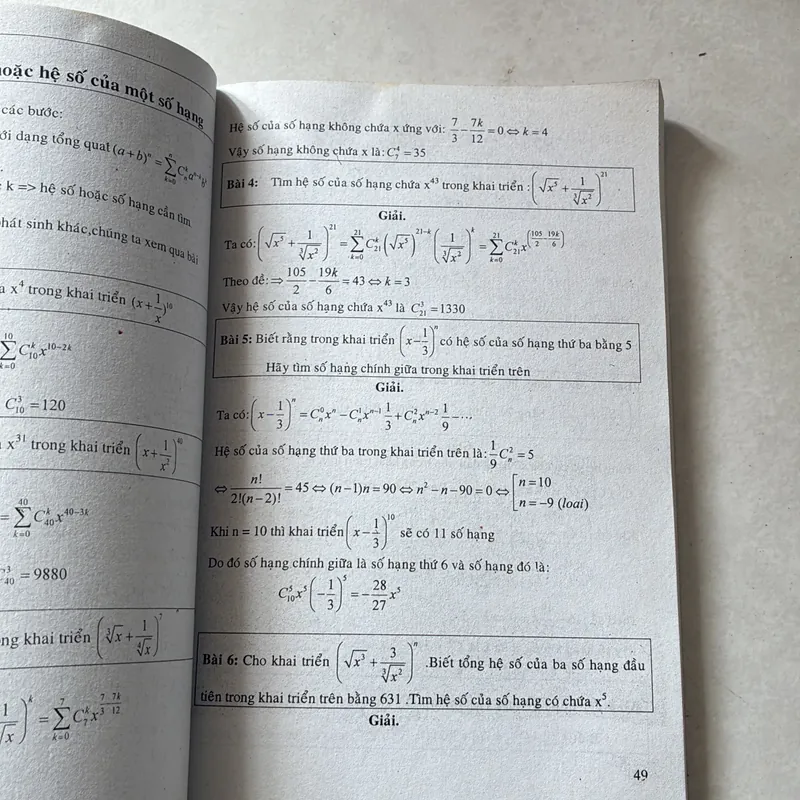 hoặc hệ số của một số hạng
các bước:
ới dạng tổng quat (a+b)^n = ∑_{k=0}^{n} C_n^k a^{n-k} b^k
k => hệ số hoặc số hạng cần tìm
hát sinh khác,chúng ta xem qua bài
a x^4 trong khai triển (x+1/x)^10
∑_{k=0}^{10} C_10^k x^{10-2k}
C_10^3 =120
x^31 trong khai triển (x+1/x^2)^40
=∑_{k=0}^{40} C_40^k x^{40-3k}
C_40^3 = 9880
ng khai triển (∛x+1/∜x)^7
)^k =∑_{k=0}^{7} C_7^k x^{7/3-7k/12}
Hệ số của số hạng không chứa x ứng với: 7/3 - 7k/12 =0⇔k=4
Vậy số hạng không chứa x là: C_7^4 =35
Bài 4: Tìm hệ số của số hạng chứa x^43 trong khai triển : (√x^5 + 1/∛x^2)^21
Giải.
Ta có: (√x^5 + 1/∛x^2)^21 = ∑_{k=0}^{21} C_21^k (√x^5)^{21-k} (1/∛x^2)^k = ∑_{k=0}^{21} C_21^k x^(105/2 - 19k/6)
Theo đề:⇒ 105/2 - 19k/6 = 43 ⇔ k = 3
Vậy hệ số của số hạng chứa x^43 là C_21^3 =1330
Bài 5: Biết rằng trong khai triển (x-1/3)^n có hệ số của số hạng thứ ba bằng 5
Hãy tìm số hạng chính giữa trong khai triển trên
Giải.
Ta có: (x-1/3)^n = C_n^0 x^n - C_n^1 x^{n-1} 1/3 + C_n^2 x^{n-2} 1/9 - …
Hệ số của số hạng thứ ba trong khai triển trên là: 1/9 C_n^2 = 5
⇔ n!/2!(n-2)! = 45 ⇔ (n-1)n = 90 ⇔ n^2 - n - 90 = 0 ⇔ [n = 10
n = -9 (loai)
Khi n = 10 thì khai triển (x-1/3)^10 sẽ có 11 số hạng
Do đó số hạng chính giữa là số hạng thứ 6 và số hạng đó là:
C_10^5 x^5 (-1/3)^5 = -28/27 x^5
Bài 6: Cho khai triển (√x^3 + 3/∛x^2)^n .Biết tổng hệ số của ba số hạng đầu
tiên trong khai triển trên bằng 631 .Tìm hệ số của số hạng có chứa x^5.
Giải.
49